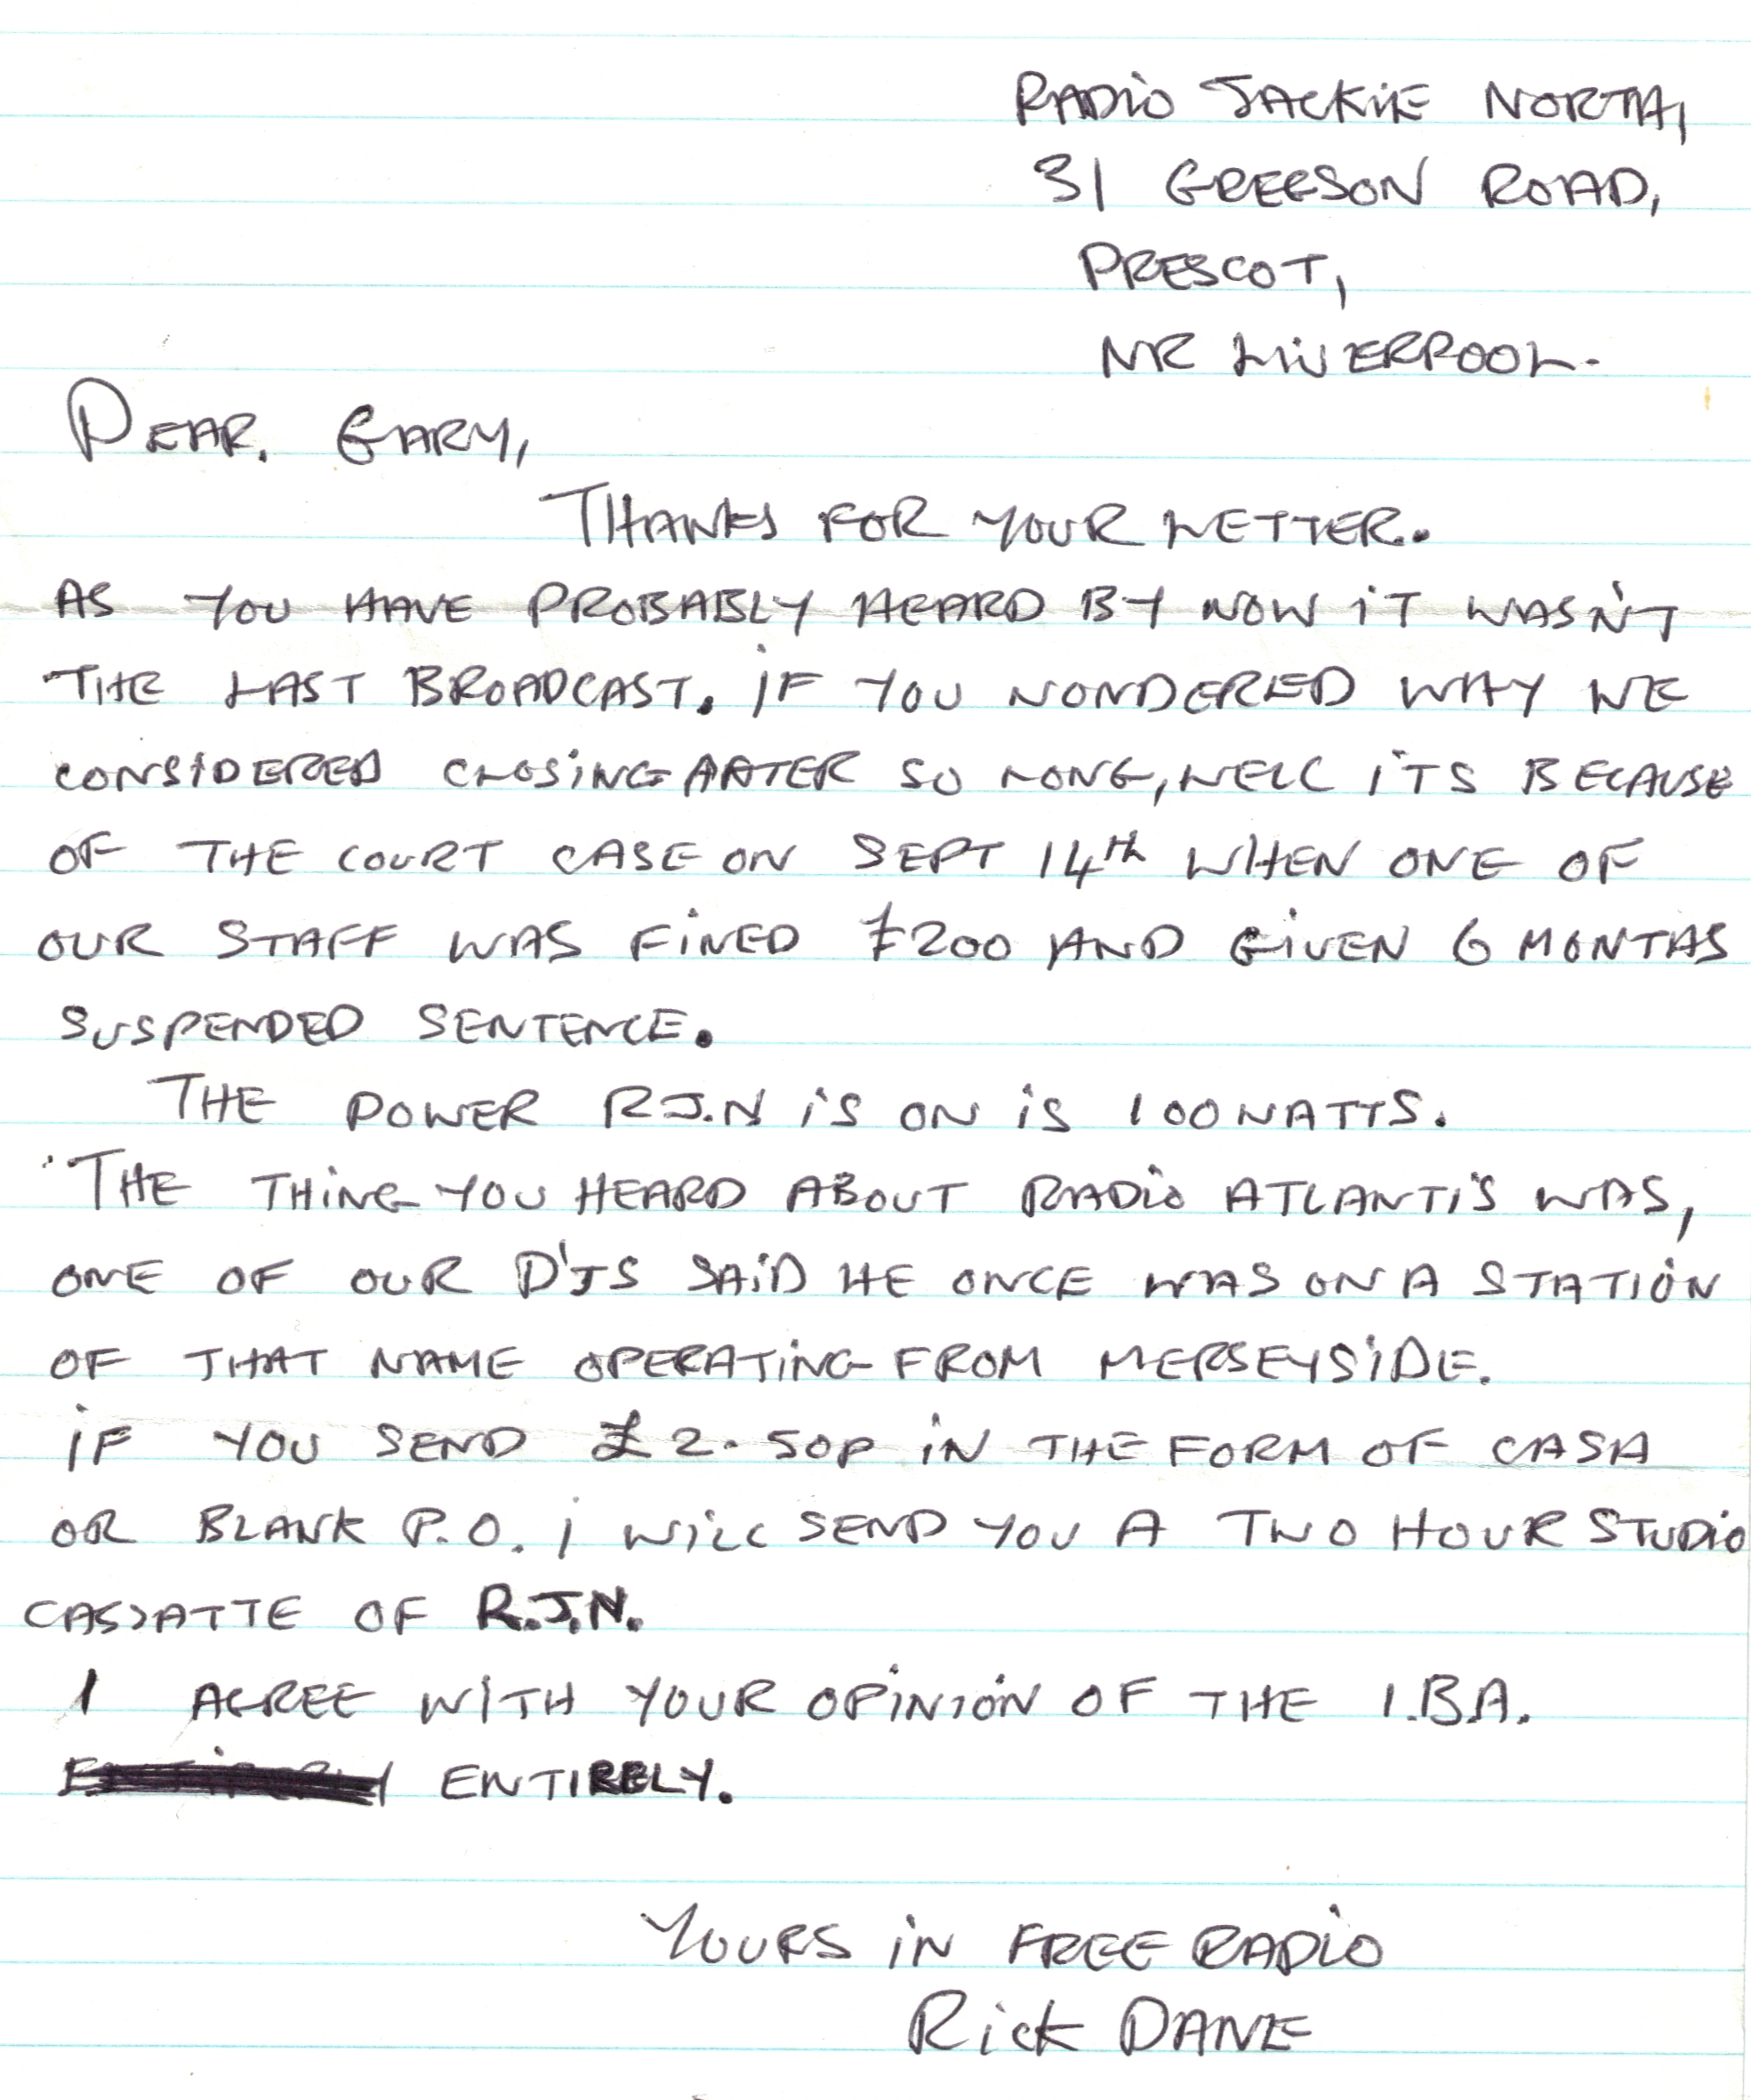 RADIO JACKIE NORTH,
31 GREESON ROAD,
PRESCOT,
NR LIVERPOOL.
DEAR. GARY,
THANKS FOR YOUR LETTER..
AS YOU HAVE PROBABLY HEARD BY NOW IT WASN'T
THE LAST BROADCAST. IF YOU WONDERED WHY WE
CONSIDERED CLOSING AFTER SO LONG, WELL ITS BECAUSE
OF THE COURT CASE ON SEPT 14th WHEN ONE OF
OUR STAFF WAS FINED £200 AND GIVEN 6 MONTHS
SUSPENDED SENTENCE.
THE POWER R.J.N IS ON IS 100 WATTS.
THE THING YOU HEARD ABOUT RADIO ATLANTIS WAS,
ONE OF OUR D'JS SAID HE ONCE WAS ON A STATION
OF THAT NAME OPERATING FROM MERSEYSIDE.
IF YOU SEND £2.50p IN THE FORM OF CASH
OR BLANK P.O. I WILL SEND YOU A TWO HOUR STUDIO
CASSATTE OF R.J.N.
I AGREE WITH YOUR OPINION OF THE I.B.A.
ENTIRELY.
YOURS IN FREE RADIO
Rick DANE